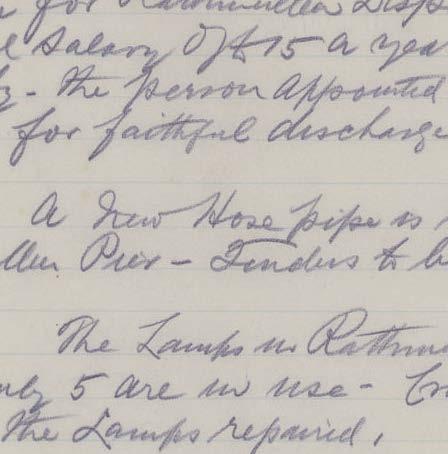 for Rathmullen Disp
Salary of £15 a yea
- the person appointed
for faithful discharge
A New Hose pipe is
llen Pier - Tenders to b
The Lamps in Rathm
nly 5 are in use -
the Lamps repaired,